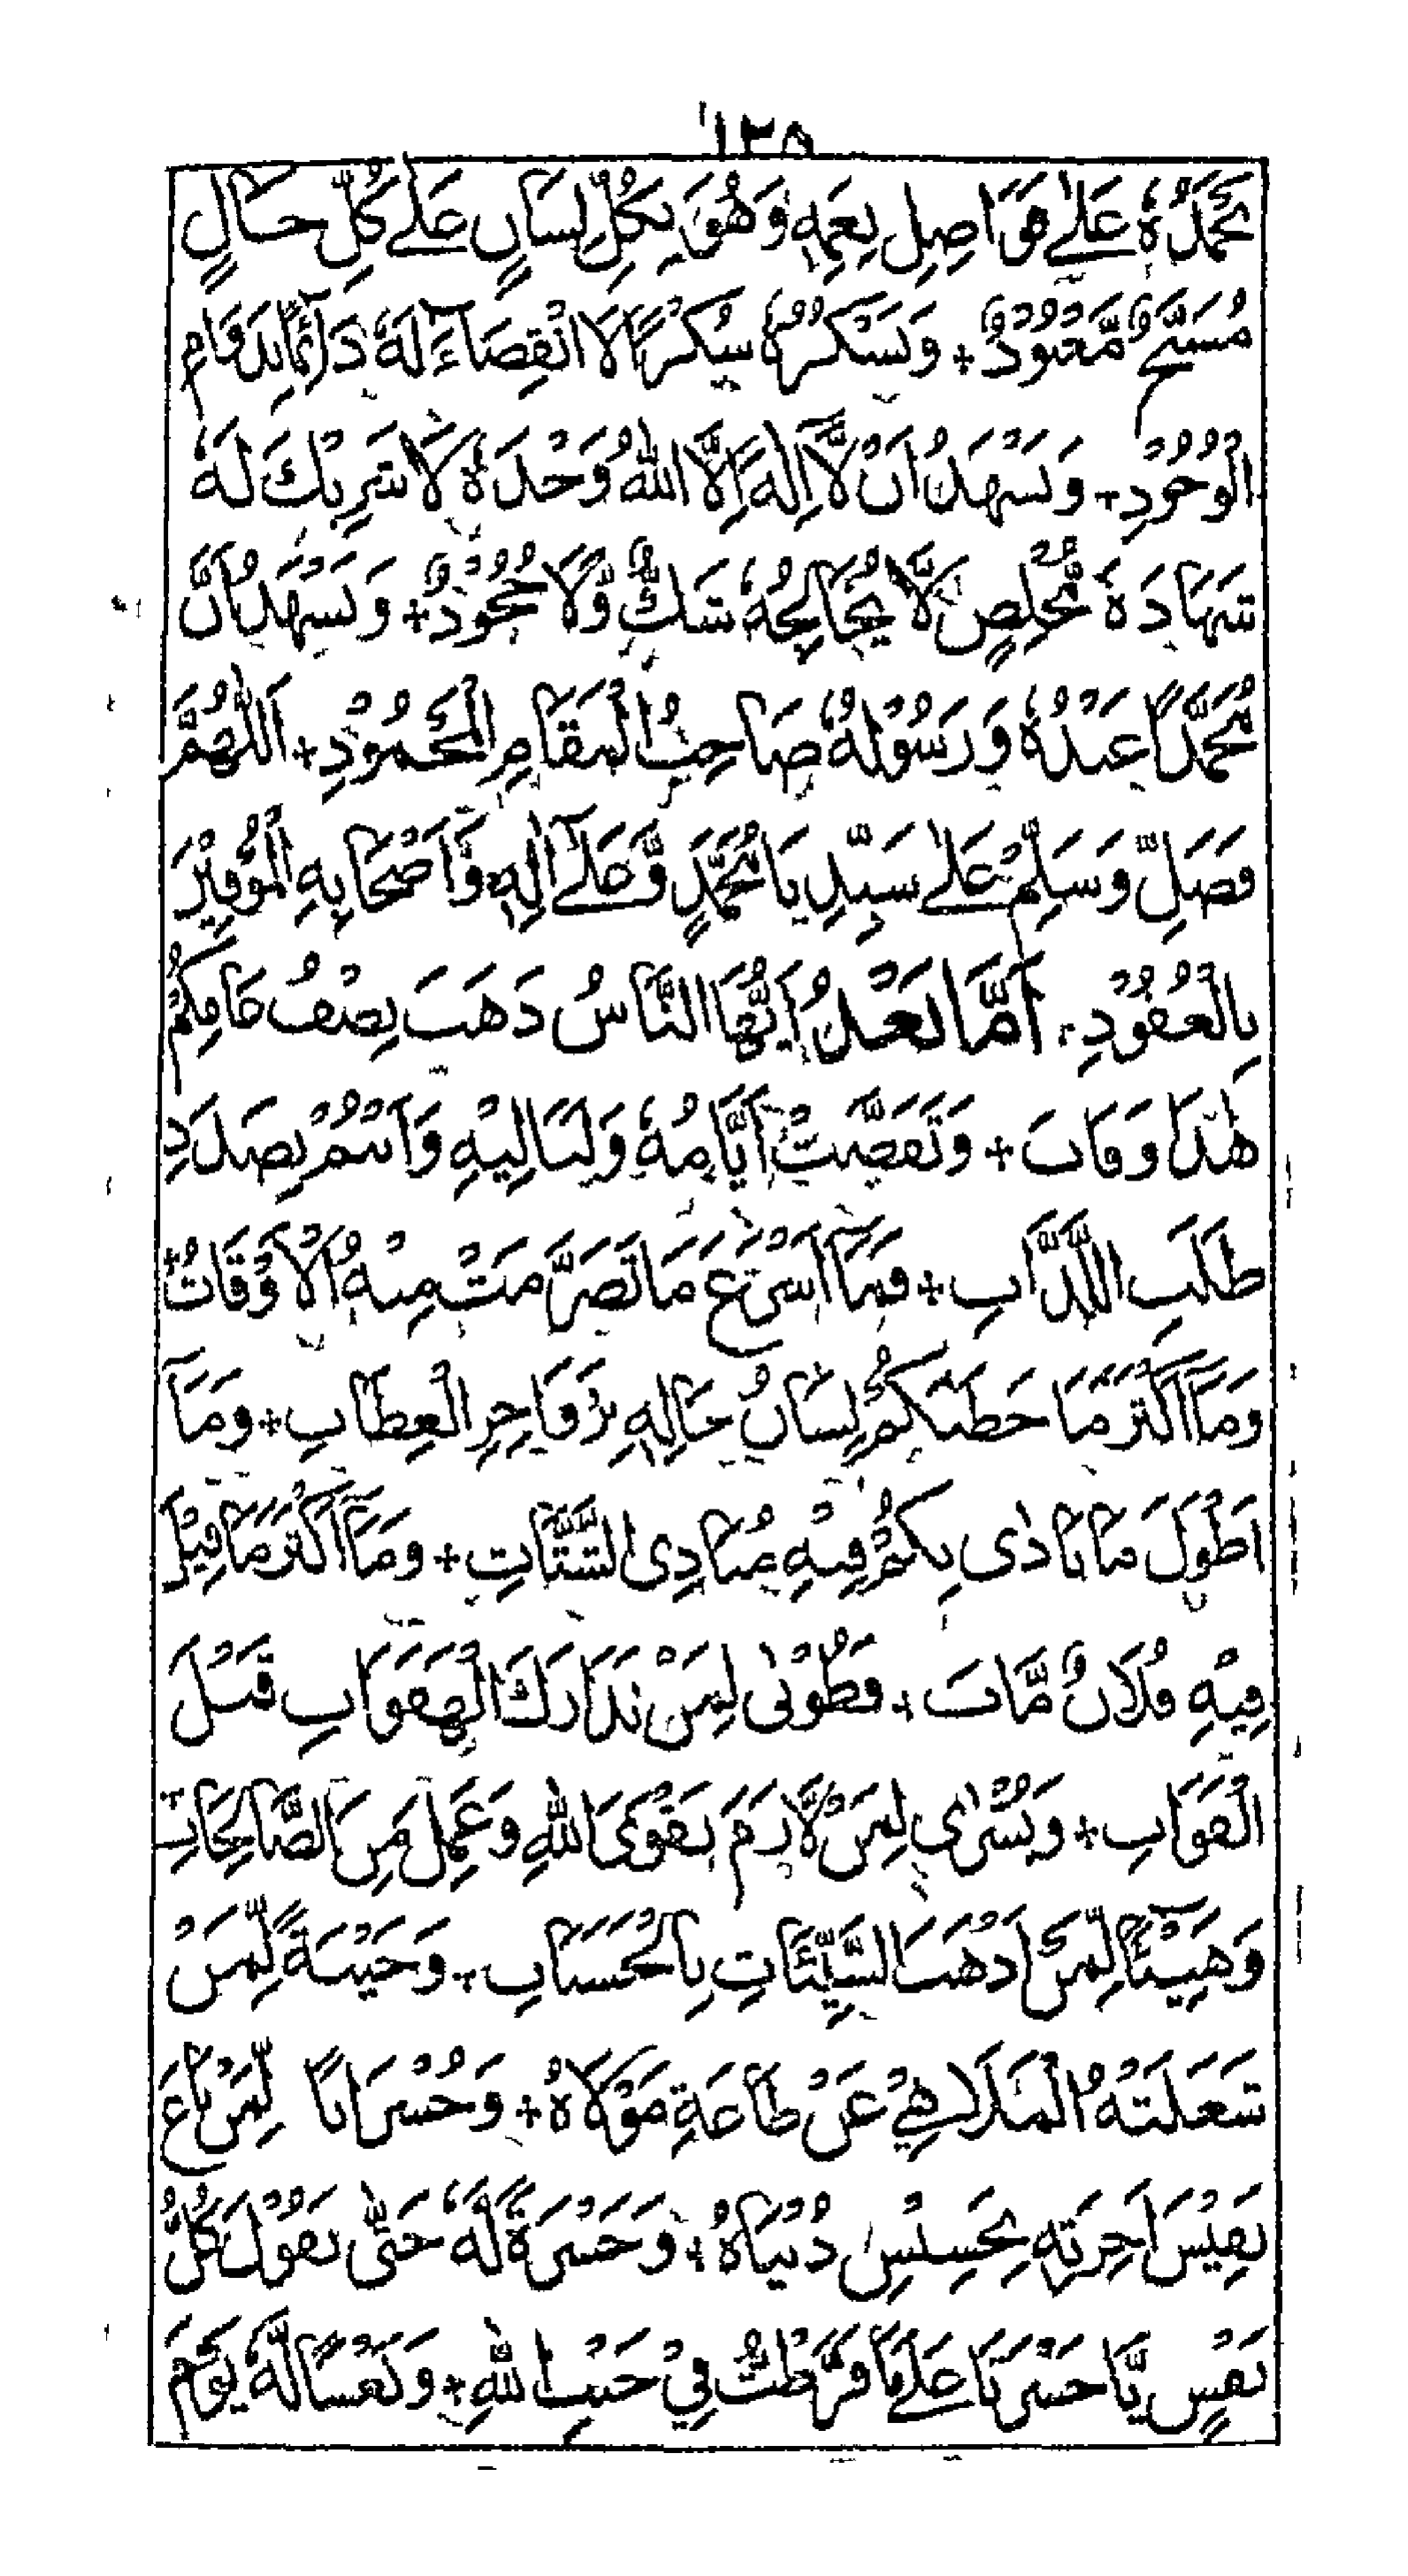 ١٢٥
نَحْمَدُهٗ عَلٰے فَوَاصِلِ نِعَمِهٖ وَهُوَ بِكُلِّ لِسَانٍ عَلٰے كُلِّ حَالٍ
مُسَبَّحٌ مَّعْبُوْدٌ + وَنَشْكُرُهٗ شُكْرًا لَا انْقِضَآءَ لَهٗ دَآئِمًا بِدَوَامِ
الْوُجُوْدِ + وَنَشْهَدُ اَنْ لَّآ اِلٰهَ اِلَّا اللّٰهُ وَحْدَهٗ لَا شَرِيْكَ لَهٗ
شَهَادَةَ مُخْلِصٍ لَّا يُخَالِجُهٗ شَكٌّ وَّلَا جُحُوْدٌ + وَنَشْهَدُ اَنَّ
مُحَمَّدًا عَبْدُهٗ وَرَسُوْلُهٗ صَاحِبُ الْمَقَامِ الْمَحْمُوْدِ + اَللّٰهُمَّ
فَصَلِّ وَسَلِّمْ عَلٰے سَيِّدِنَا مُحَمَّدٍ وَّعَلٰےٓ اٰلِهٖ وَاَصْحَابِهِ الْمُوْفِيْنَ
بِالْعُقُوْدِ + اَمَّا بَعْدُ اَيُّهَا النَّاسُ ذَهَبَ نِصْفُ عَامِكُمْ
هٰذَا وَفَاتَ + وَتَقَضَّتْ اَيَّامُهٗ وَلَيَالِيْهِ وَاَنْتُمْ بِصَدَدِ
طَلَبِ اللَّذَّاتِ + فَمَآ اَسْرَعَ مَا تَصَرَّمَتْ مِنْهُ الْاَوْقَاتُ +
وَمَآ اَكْثَرَ مَا خَطَبَكُمْ لِسَانُ حَالِهٖ بِزَوَاجِرِ الْعِظَاتِ + وَمَآ
اَطْوَلَ مَا نَادٰى بِكُمْ فِيْهِ مُنَادِى الشَّتَاتِ + وَمَآ اَكْثَرَ مَا قِيْلَ
فِيْهِ فُلَانٌ مَّاتَ + فَطُوْبٰى لِمَنْ تَدَارَكَ الْهَفَوَاتِ قَبْلَ
الْفَوَاتِ + وَبُشْرٰى لِمَنْ لَّازَمَ تَقْوَى اللّٰهِ وَعَمِلَ مِنَ الصَّالِحَاتِ +
وَهَنِيْئًا لِّمَنْ اَذْهَبَ السَّيِّئَاتِ بِالْحَسَنَاتِ + وَخَيْبَةً لِّمَنْ
شَغَلَتْهُ الْمَلَاهِيْ عَنْ طَاعَةِ مَوْلَاهُ + وَخُسْرَانًا لِّمَنْ بَاعَ
نَفِيْسَ اٰخِرَتِهٖ بِخَسِيْسِ دُنْيَاهُ + وَحَسْرَةً لَّهٗ حَتّٰى تَقُوْلَ كُلُّ
نَفْسٍ يَّا حَسْرَتَا عَلٰے مَا فَرَّطْتُّ فِيْ جَنْبِ اللّٰهِ + وَتَعْسًا لَّهٗ يَوْمَ